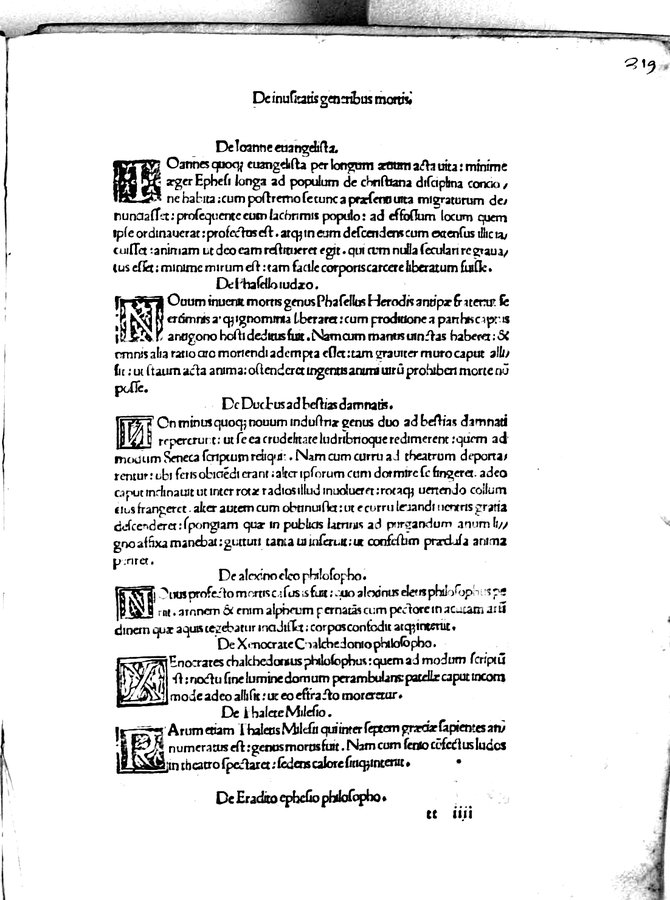 319
De inusitatis generibus mortis.
De Ioanne euangelista.
IOannes quoq; euangelista per longum æuum acta uita: minime
æger Ephesi longa ad populum de christiana disciplina concio/
ne habita: cum postremo se tunc a præsenti uita migraturum de/
nunciasset: prosequente eum lachrimis populo: ad effossum locum quem
ipse ordinauerat: profectus est. atq; in eum descendens cum extensus illic ia/
cuisset: animam ut deo eam restitueret egit. qui cum nulla seculari re graua/
tus esset: minime mirum est: tam facile corporis carcere liberatum fuisse.
De Phasello iudæo.
NOuum inuenit mortis genus Phasellus Herodis antipæ frater: ut se
erũmnis atq; ignominia liberaret: cum proditione a parthis captus
antigono hosti deditus fuit. Nam cum manus uinctas haberet: &
omnis alia ratio cito moriendi adempta esset: tam grauiter muro caput alli/
sit: ut statim acta anima: ostenderet ingentis animi uirũ prohiberi morte nõ
posse.
De Duobus ad bestias damnatis.
NOn minus quoq; nouum industriæ genus duo ad bestias damnati
repererunt: ut se ea crudelitate ludribrioque redimerent: quem ad
modum Seneca scriptum reliquit. Nam cum curru ad theatrum deporta/
rentur: ubi feris obiiciẽdi erant: alter ipsorum cum dormire se fingeret. adeo
caput inclinauit ut inter rotæ radios illud inuolueret: rotaq; uertendo collum
eius frangeret. alter autem cum obtinuisset: ut e curru leuandi uentris gratia
descenderet: spongiam quæ in publicis latrinis ad purgandum anum li//
gno affixa manebat: gutturi tanta ui inseruit: ut confestim præclusa anima
periret.
De alexino eleo philosopho.
NOuus profecto mortis casus is fuit: quo alexinus eleus philosophus pe
riit. amnem & enim alpheum pernatãs cum pectore in acutam arũ
dinem quæ aquis tegebatur incidisset: corpus confodit atq; interiit.
De Xenocrate Chalchedonio philosopho.
XEnocrates chalchedonius philosophus: quem ad modum scriptũ
est: noctu sine lumine domum perambulans: patellæ caput incom
mode adeo allisit: ut eo effracto moreretur.
De Thalete Milesio.
RArum etiam Thaletis Milesii qui inter septem græciæ sapientes an/
numeratus est: genus mortis fuit. Nam cum senio cõfectus ludos
in theatro spectaret: sedens calore sitiq; interiit.
De Eraclito ephesio philosopho.
tt iiii